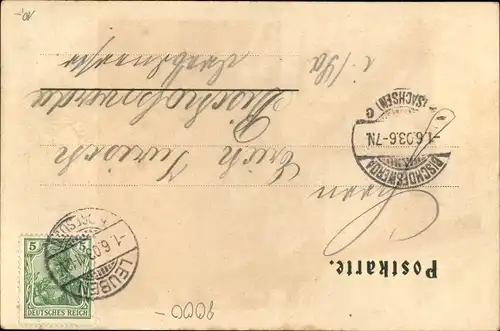 Postkarte.
Herrn
Erich
Bischofswerda
i/Sa
BISCHOFSWERDA
-1.6.03.6-7N.
(SACHSEN) C
LEUBEN
-1.6.03
5
DEUTSCHES REICH
9000-
10,-